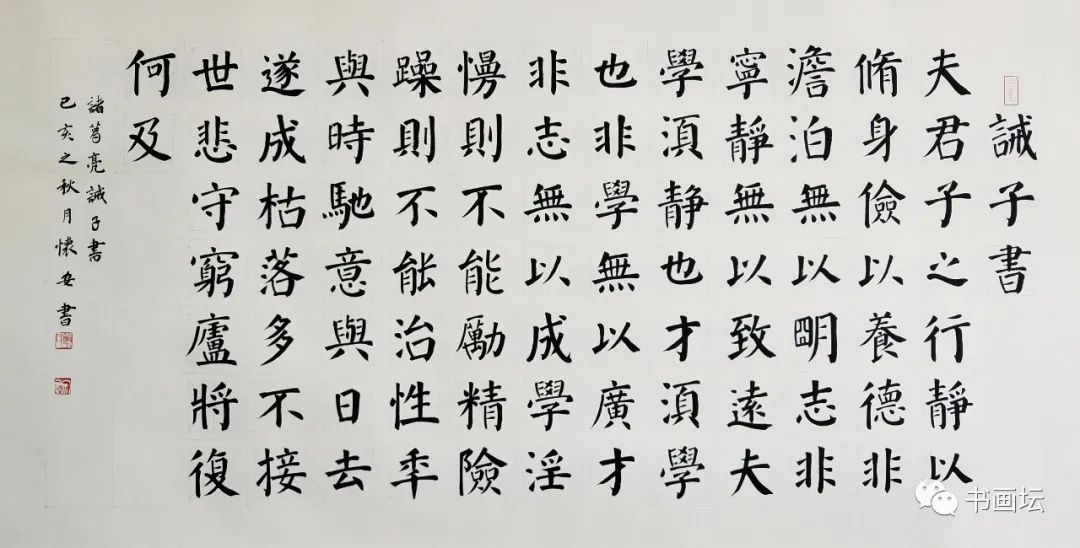 誡子書
夫君子之行靜以
脩身儉以養德非
澹泊無以明志非
寧靜無以致遠夫
學湏静也才湏學
也非學無以廣才
非志無以成學淫
慢則不能勵精險
躁則不能治性年
與時馳意與日去
遂成枯落多不接
世悲守窮廬將復
何及
諸葛亮誡子書
己亥之秋月懷安書
书画坛